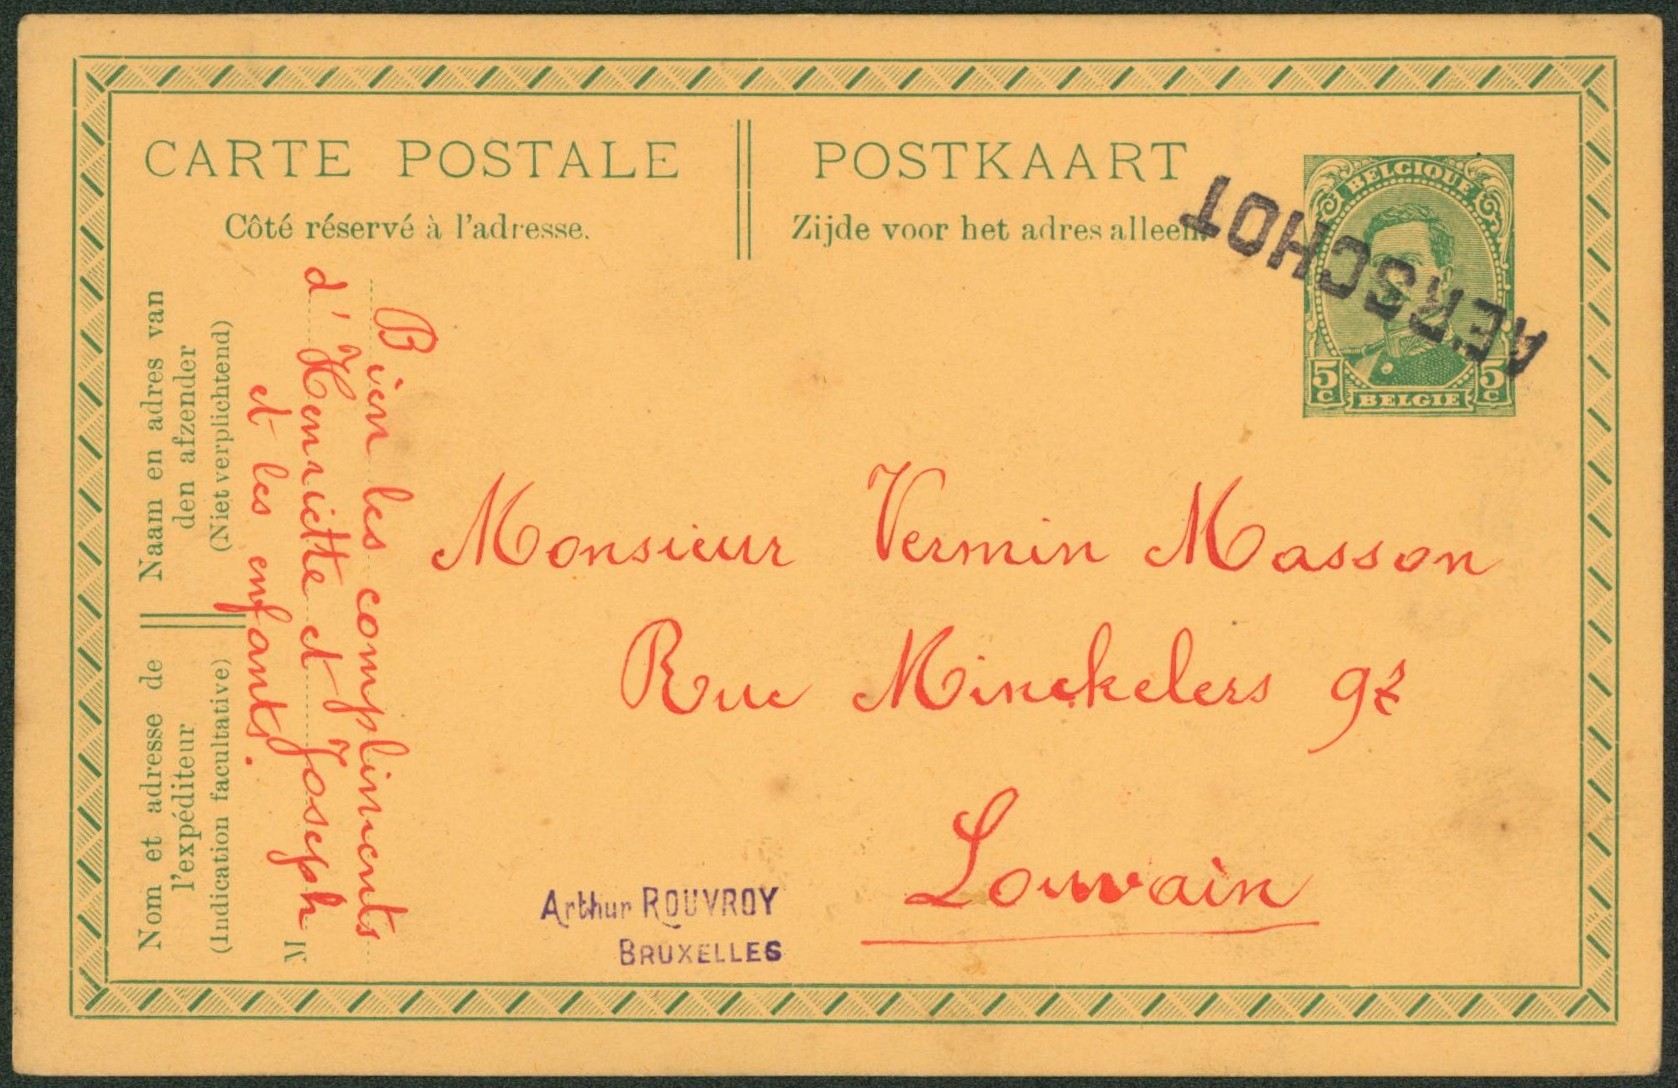 CARTE POSTALE
POSTKAART
Côté réservé à l'adresse.
Zijde voor het adres alleen.
BELGIQUE
5 c
5 c
BELGIE
AERSCHOT
Naam en adres van
den afzender
(Niet verplichtend)
Nom et adresse de
l'expéditeur
(Indication facultative)
M
Bien les compliments
d'Henriette et Joseph
et les enfants.
Monsieur Vermin Masson
Rue Minckelers 92
Louvain
Arthur ROUVROY
BRUXELLES